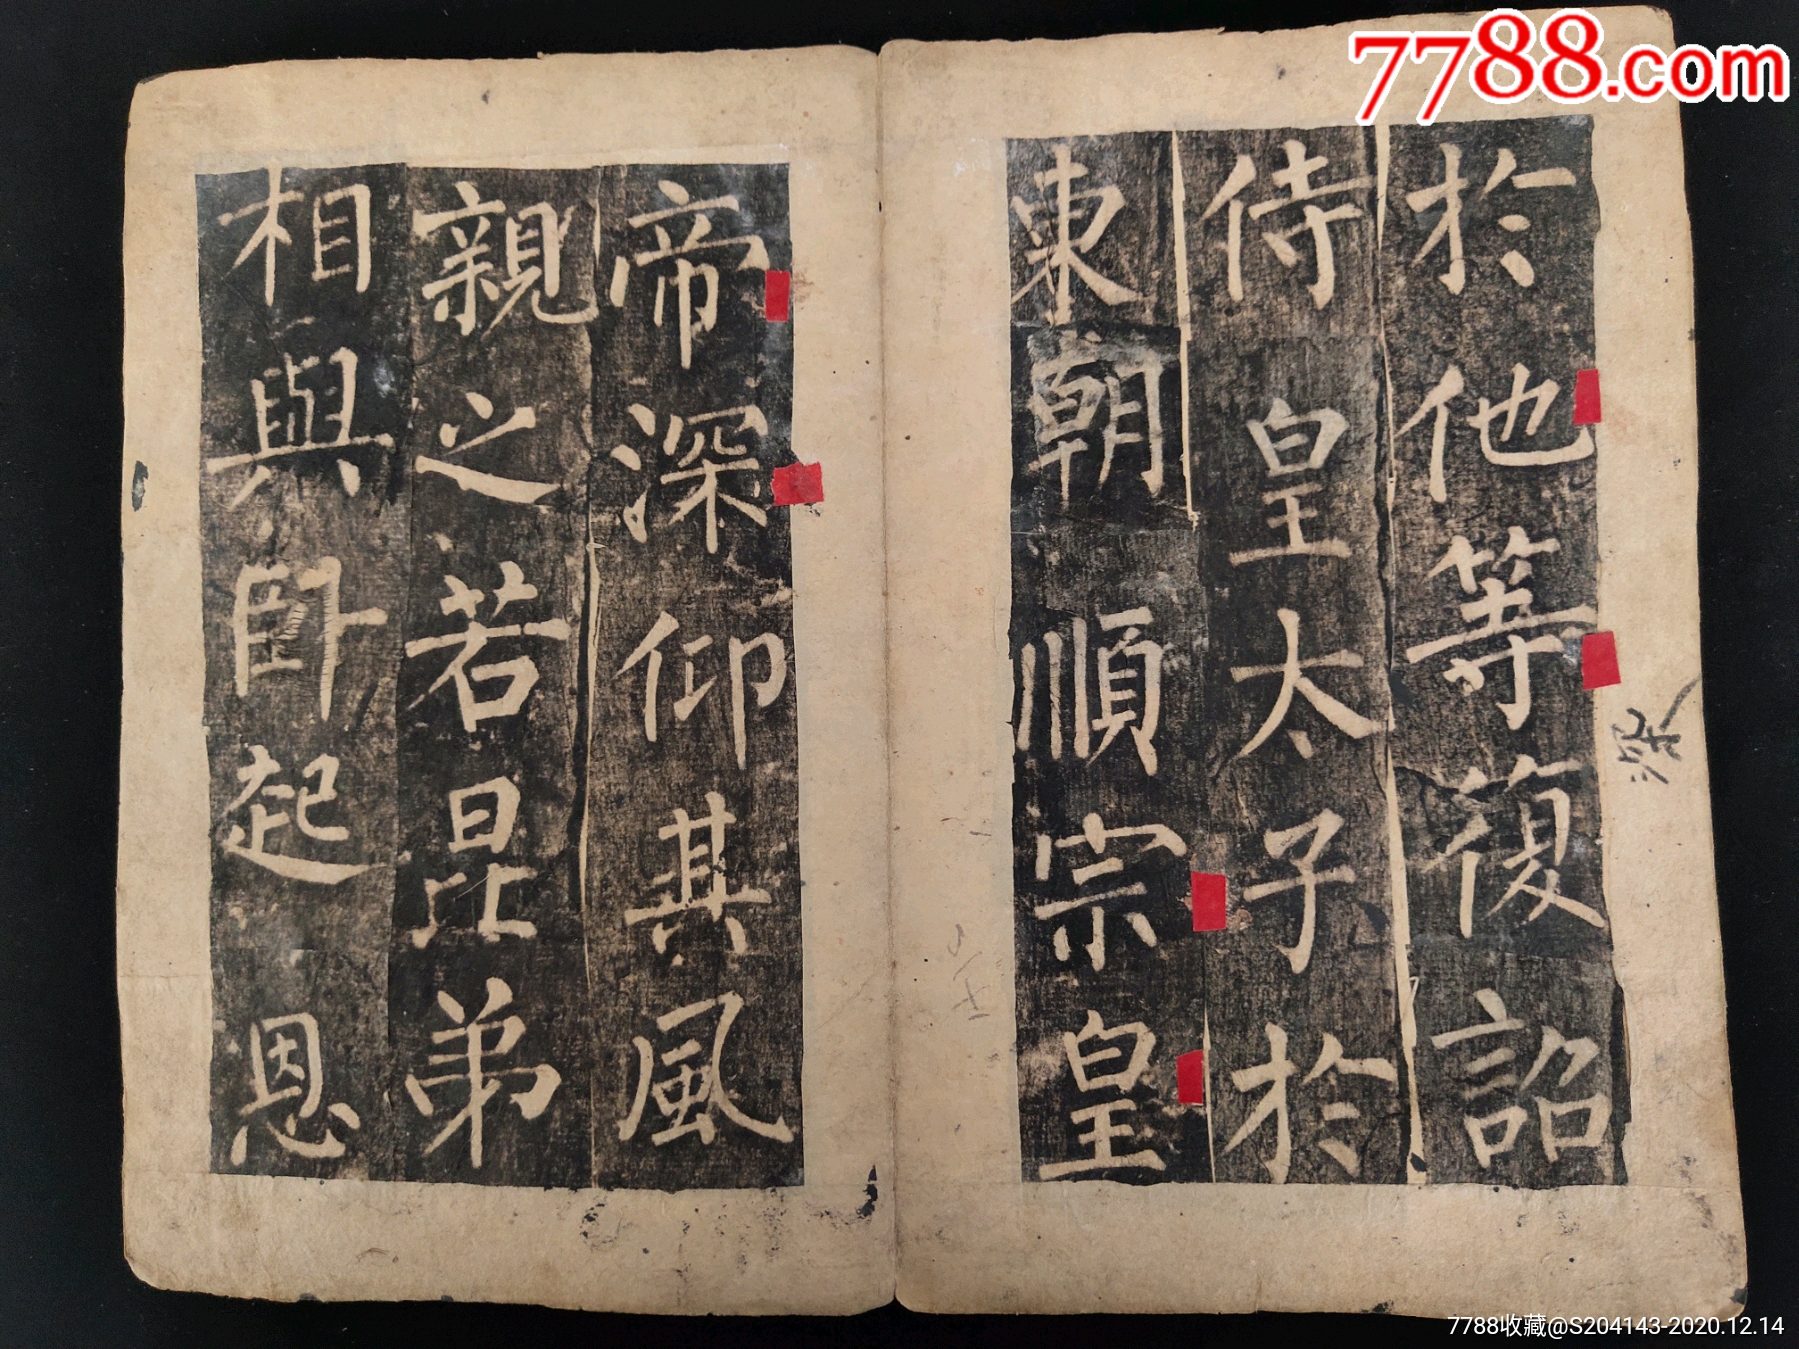 7788.com
於他等復詔
侍皇太子於
東朝順宗皇
帝深仰其風
親之若昆弟
相與卧起恩
7788收藏@S204143-2020.12.14